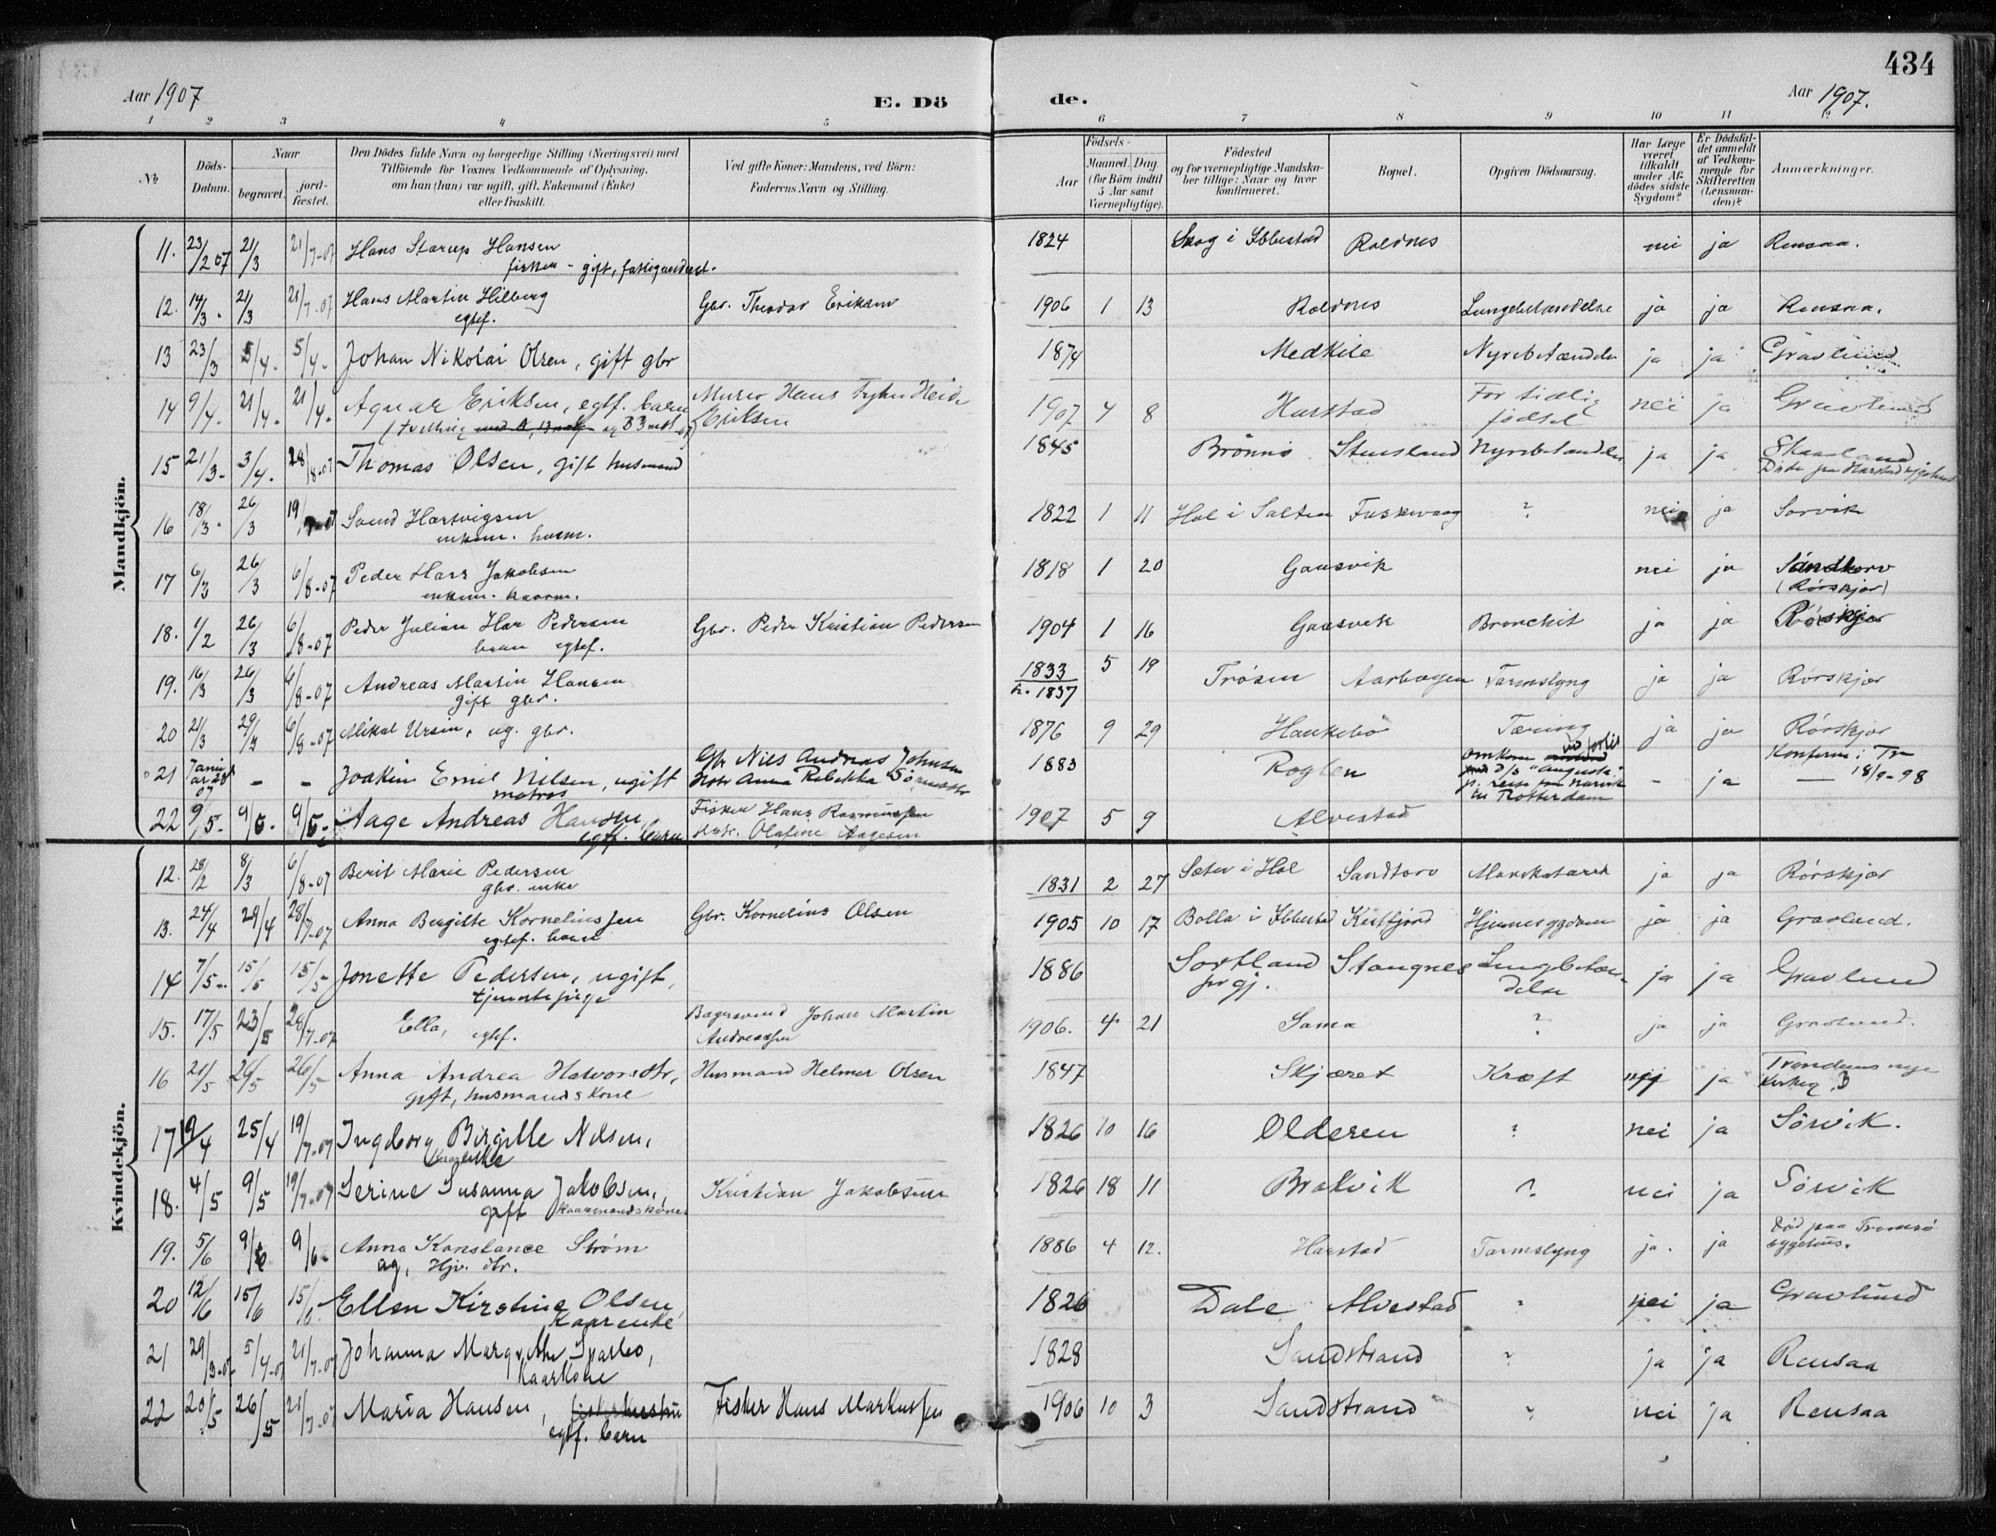 434
Aar 1907
E. Dö
de.
Aar 1907.
1 2 3 4 5 6 7 8 9 10 11 12
No
Döds-Datum.
Naar
begravet.
jord-fæstet.
Den Dödes fulde Navn og borgerlige Stilling (Næringsvei) med
Tilföiende for Voxnes Vedkommende af Oplysning,
om han (hun) var ugift, gift, Enkemand (Enke)
eller fraskilt.
Ved gifte Koner: Mandens, ved Börn:
Faderens Navn og Stilling.
Födsels-
Aar
Maaned. Dag.
(for Börn indtil
5 Aar samt
Værnepligtige).
Födested
og for værnepligtige Mandska-
ber tillige: Naar og hvor
konfirmeret.
Bopæl.
Opgiven Dödsaarsag.
Har Læge
været
tilkaldt
under Af-
dödes sidste
Sygdom?
Er Dödsfal-
det anmeldt
af Vedkom-
mende for
Skifteretten
(Lensman-
den)?
Anmærkninger.
Mandkjön.
11. 23/2 07 21/3 21/7-07 Hans Starup Hansen 1824 Skog i Ibbestad Roldnes nei ja Rensaa.
fisker - gift, fattigunderst.
12. 14/3. 21/3 21/7-07 Hans Martin Hilberg Gbr. Theodor Eriksen 1906 1 13 Roldnes Lungebetændelse ja ja Rensaa.
egtef.
13 23/3 5/4. 5/4- Johan Nikolai Olsen, gift gbr 1874 Medkile Nyrebetændelse ja ja Gravlund
14 9/4. 21/4. 21/4. Agnar Eriksen, egtf. barn Murer Hans 1907 4 8 Harstad For tidlig nei ja Gravlund
Eriksen fødsel
15 21/3- 3/4. 28/8-07 Thomas Olsen, gift husmand 1845 Brønnø Stensland Nyrebetændelse ja ja Skaanland
Døde paa Harstad sygehus
16 18/3. 26/3 19/7-07 Svend Hartvigsen 1822 1 11 Hol i Salten Fuskevaag ? nei ja Sørvik
enkem. husm.
17 6/3 26/3 6/8-07 Peder Hars Jakobsen 1818 1 20 Gansvik nei ja Sandtorv
enkem. kaarm. (Rørskjær)
18. 1/2 26/3 6/8-07 Peder Julian Har Pedersen Gbr. Peder Kristian Pedersen 1904 1 16 Gansvik Bronchit ja ja Rørskjær
barn egtef.
19. 16/3 26/3 6/8-07 Andreas Martin Hansen 1833 5 19 Trøsen Aarbogen Tarmslyng ja ja Rørskjær
gift gbr. 1837
20 21/3 29/3 6/8-07 Mikal Ursin, ug. gbr. 1876 9 29 Haukebø Tæring ja ja Rørskjær
21 Januar 07 - - Joakim Emil Nilsen, ugift Gbr Nils Andreas Johnsen 1883 Roglen Omkom ved forlis - ja Konfirm. i Tr
matros Hstr Anna Rebekka D/S "Augusta" 18/9-98
reise fra Narvik
til Rotterdam
22 9/5- 9/5. 9/5- Aage Andreas Hansen Fisker Hans Rasmussen 1907 5 9 Alvestad
egtf. barn Hstr. Olafine Aagesen
Kvindekjön.
12. 28/2 8/3 6/8-07 Berit Marie Pedersen 1831 2 27 Sæter i Hol Sandtorv Mavekatarrh ja ja Rørskjær
gbr. enke
13. 24/4 29/4 28/7-07 Anna Bergitte Kornelinssen Gbr. Kornelius Olsen 1905 10 17 Bolla i Ibbestad Kastfjord Hjernesygdom ja ja Gravlund.
egtef. barn
14 7/5- 15/5 15/5- Jonette Pedersen, ugift, 1886 Sortland Stangnes Lungebetæn- ja ja Gravlund
tjenestepige prgj. delse
15. 17/5 23/5 28/7-07 Ella, Bagersvend Johan Martin 1906. 4 21 Sama ? ja ja Gravlund.
egtef. Andreassen
16 21/5 26/5 26/5 Anna Andrea Halvorsdtr, Husmand Helmer Olsen 1847 Skjæret Kræft nej ja Trondenes nye
gift, husmandskone Kirkeg. B
17 19/4 25/4 19/7-07 Ingeborg Birgitte Nilsen, 1826 10 16 Olderen ? nei ja Sörvik.
enke
18. 4/5 9/5 19/7-07 Serine Susanna Jakobsen, Kristian Jakobsen 1826 18 11 Brokvik ? nei ja Sörvik
gift kaarmandskone
19. 5/6 9/6 9/6- Anna Konstance Strøm 1886 4 12. Harstad Tarmslyng ja. ja Död paa Tromsö
ug, Hjv. dtr. sygehus.
20 12/6 15/6 15/6- Ellen Kirstine Olsen, 1826 Dale Alvestad " nei ja Gravlund
Kaarenke
21 29/3-07 5/4-07 21/7-07 Johanna Margrethe Sparbo, 1828 Sandstrand ? ja ja Rensaa
Kaarkone
22 20/5 26/5 21/7-07 Maria Hansen, Fisker Hans Markussen 1906 10 3 Sandstrand ? nei ja Rensaa
egtf. barn